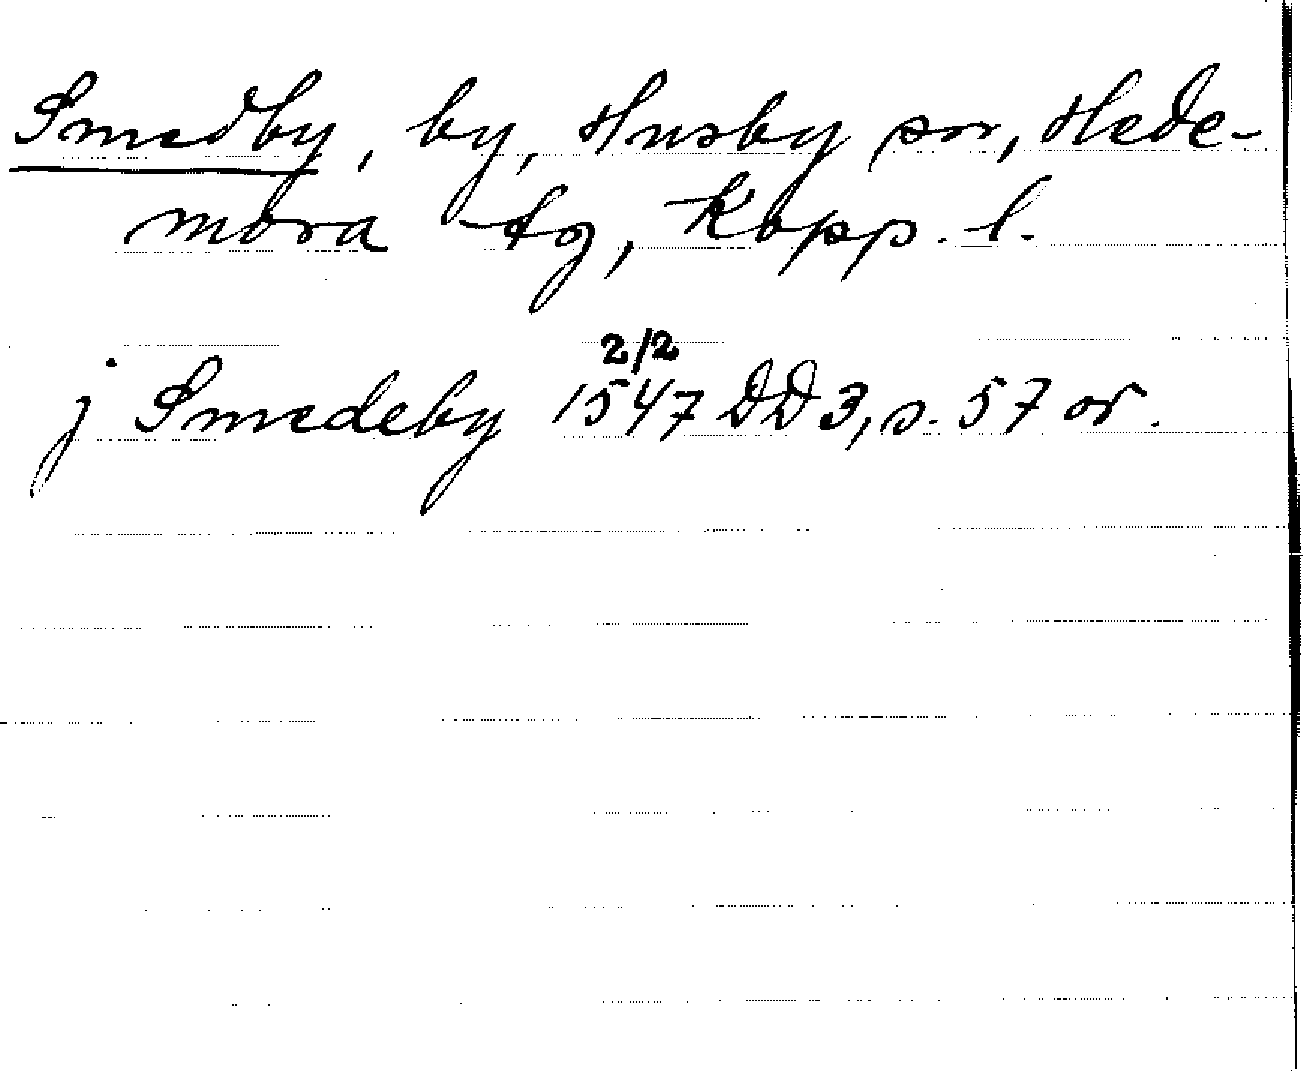 Smedby, by, Husby sn, Hede-
mora tg, Kopp. l.
2/2
j Smedeby 1547 DD 3, s. 57 or.